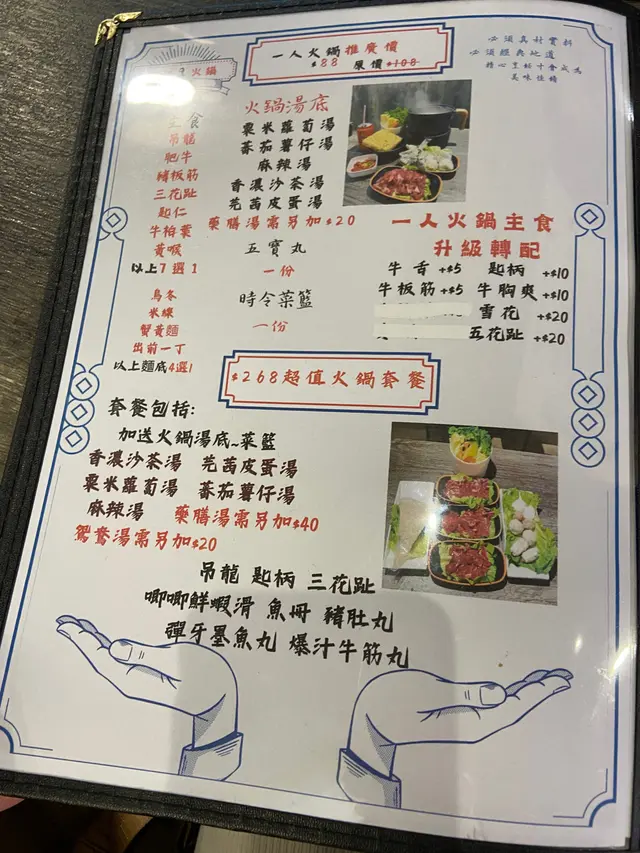 一人火鍋推廣價
$88 原價$108
火鍋
必須真材實料
必須經典地道
美味佳餚
主食
吊龍
肥牛
豬板筋
三花趾
匙仁
牛柏葉
黃喉
以上7選1
烏冬
米線
蟹黃麵
出前一丁
以上麵底4選1
火鍋湯底
粟米蘿蔔湯
蕃茄薯仔湯
麻辣湯
香濃沙茶湯
芫茜皮蛋湯
藥膳湯需另加$20
五寶丸
一份
時令菜籃
一份
一人火鍋主食
升級轉配
牛舌+$5 匙柄+$10
牛板筋+$5 牛胸爽+$10
雪花+$20
五花趾+$20
$268超值火鍋套餐
套餐包括:
加送火鍋湯底~菜籃
香濃沙茶湯 芫茜皮蛋湯
粟米蘿蔔湯 蕃茄薯仔湯
麻辣湯 藥膳湯需另加$40
鴛鴦湯需另加$20
吊龍 匙柄 三花趾
唧唧鮮蝦滑 魚冊 豬肚丸
彈牙墨魚丸 爆汁牛筋丸